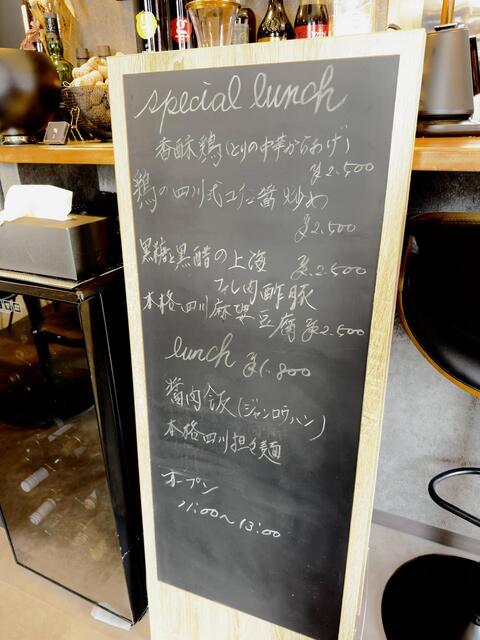 special lunch
香酥鶏(とりの中華からあげ)
¥2.500
鶏の四川式コチュ醤炒め
¥2.500
黒糖と黒醋の上海 ¥2.500
フィレ肉酢豚
本格四川麻婆豆腐 ¥2.500
lunch ¥1.800
醤肉飯(ジャンロウハン)
本格四川担々麺
オープン
11:00〜13:00